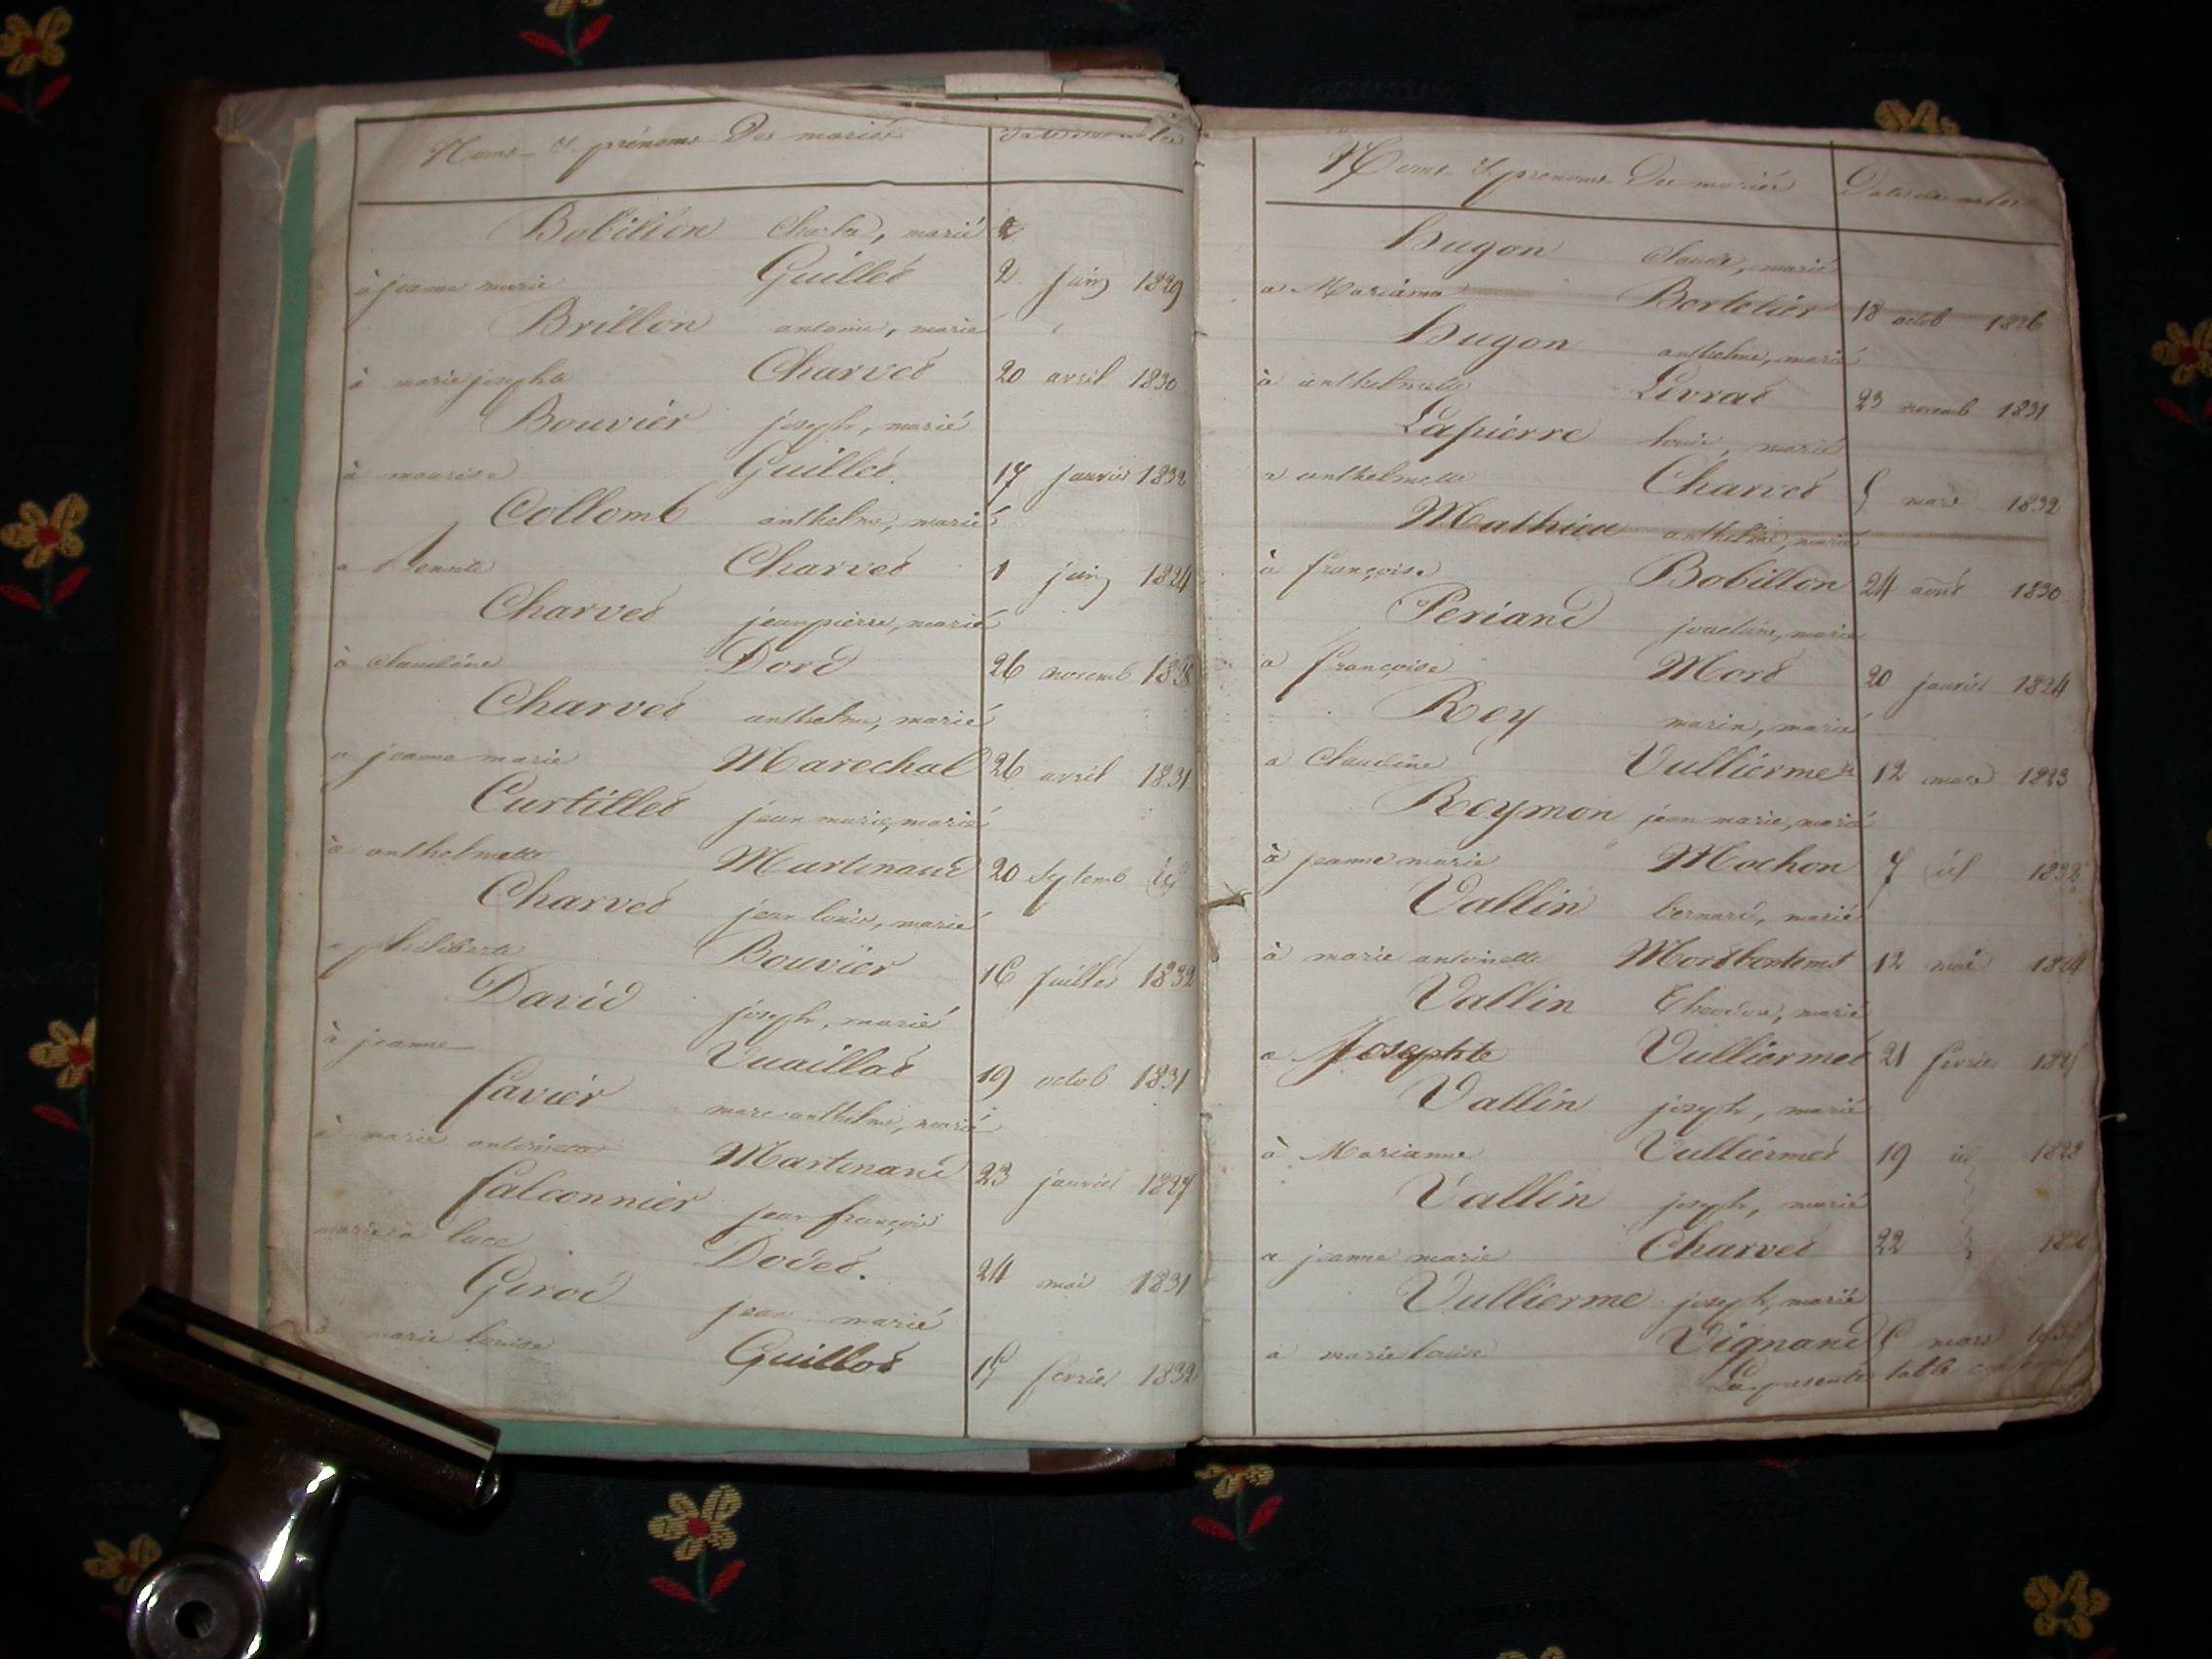 Noms & prénoms Des mariés
Bobillon Charles, marié
à jeanne marie Guillet 2 juin 1829
Brillon antoine, marié
à marie josephte Charvet 20 avril 1830
Bouvier joseph, marié
à maurise Guillet. 17 janvier 1832
Collomb anthelme, marié
a Charvet 1 juin 1824
Charvet jean pierre, marié
à claudine Dord 26 novemb
Charvet anthelme, marié
a jeanne marie Marechal 26 avril 1831
Curtillet jean marie, marié
à anthelmette Martinand 20 septemb id
Charvet jean louis, marié
a philiberte Bouvier 16 juillet 1832
David joseph, marié
à jeanne Vuaillat 19 octob 1831
favier marc anthelme, marié
à marie antoinette Martinand 23 janvier 1827
falconnier jean françois
marié à luce Dodet. 24 mai 1831
Gerod jean marié
à marie louise Guillot fevrier 1832
Noms & prenoms Des mariés Date des actes
hugon claude, marié
a Marianne Bertelier 18 octob 1826
hugon anthelme, marié
à anthelmette Livrat 23 novemb 1831
Lapierre louis, marié
a anthelmette Charvet mars 1832
Mathieu anthelme, marié
à françoise Bobillon 24 août 1830
Periand marié
a françoise Mort 20 janvier 1824
Rey marin, marié
a claudine Vullierme 12 mars 1823
Reymon jean marie, marié
à jeanne marie Mochon 7 id
Vallin bernard, marié
à marie antoinette Mortbontemt 12 mai
Vallin Theodore, marié
a Josephte Vulliermet 21 fevrier
Vallin joseph, marié
à Marianne Vulliermet 19 id
Vallin joseph, marié
a jeanne marie Charvet 22
Vullierme joseph, marié
a marie louise Vignand mars
La presente table